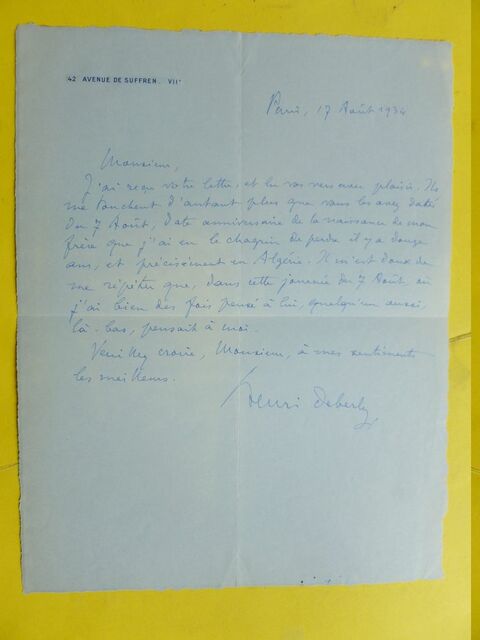 42 AVENUE DE SUFFREN. VIIe
Paris, 17 Août 1934
Monsieur,
J'ai reçu votre lettre, et lu vos vers avec plaisir. Ils
me touchent d'autant plus que vous les avez datés
du 7 Août, date anniversaire de la naissance de mon
frère que j'ai eu le chagrin de perdre il y a douze
ans, et précisément en Algérie. Il m'est doux de
me répéter que, dans cette journée du 7 Août, où
j'ai bien des fois pensé à lui, quelqu'un aussi,
là-bas, pensait à moi.
Veuillez croire, Monsieur, à mes sentiments
les meilleurs.
Henri Deberly